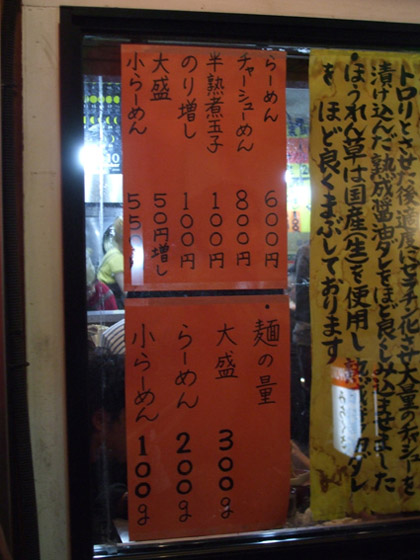 トロリとさせた後、適度にゼラチン化させ大量のチャシューを
漬け込んだ熟成醤油ダレをほど良くしみ込ませました
・ほうれん草は国産(生)を使用し、熟 ダレ
をほど良くまぶしております
らーめん 600円
チャーシューめん 800円
半熟煮玉子 100円
のり増し 100円
大盛 50円増し
小らーめん 55
・麺の量
大盛 300g
らーめん 200g
小らーめん 100g